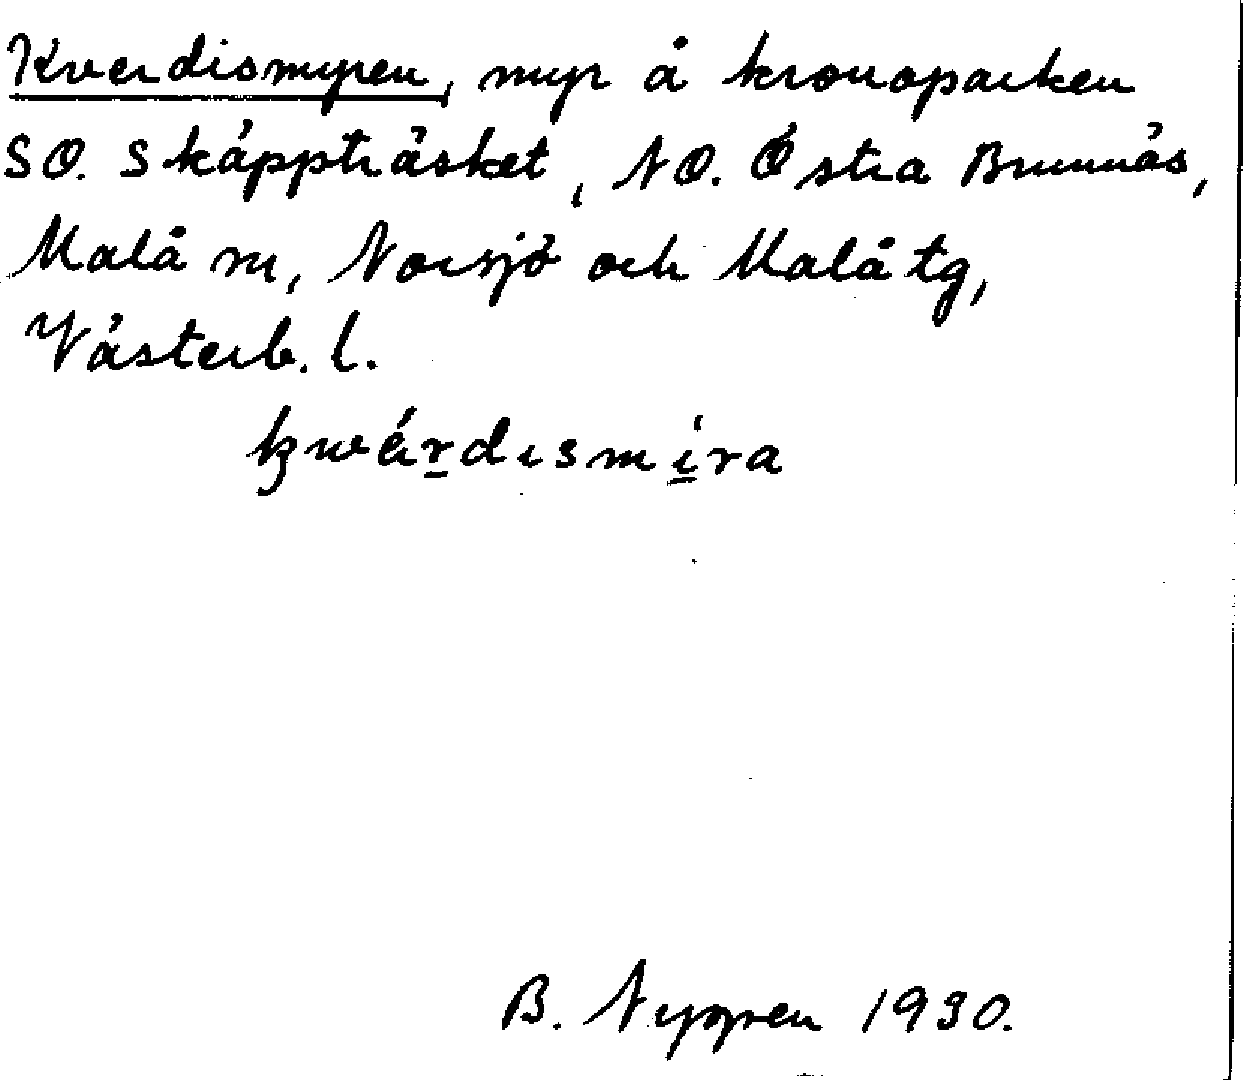 Kverdismyren, myr å kronoparken
SO. Skäppträsket, NO. Östra Brunnäs,
Malå sn, Norsjö och Malå tg,
Västerb. l.
B. Nygren 1930.